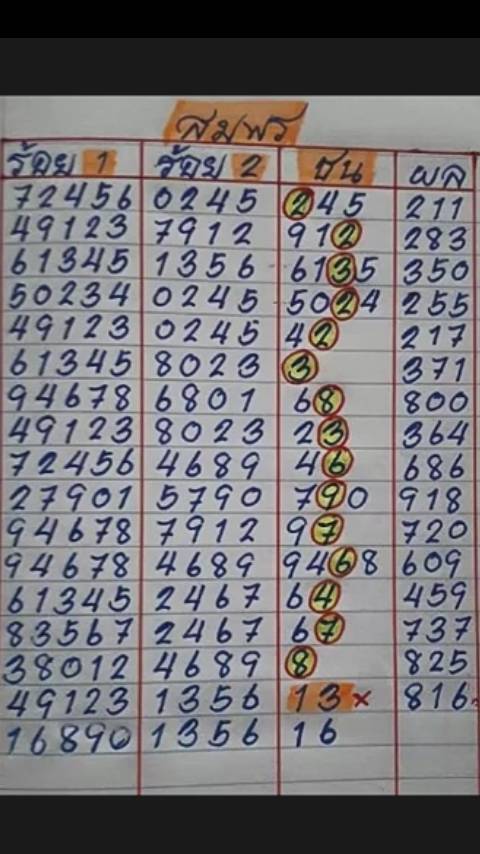 สมพร
ร้อย 1 ร้อย 2 ชน ผล
72456 0245 245 211
49123 7912 912 283
61345 1356 6135 350
50234 0245 5024 255
49123 0245 42 217
61345 8023 3 371
94678 6801 68 800
49123 8023 23 364
72456 4689 46 686
27901 5790 790 918
94678 7912 97 720
94678 4689 9468 609
61345 2467 64 459
83567 2467 67 737
38012 4689 8 825
49123 1356 13 × 816
16890 1356 16